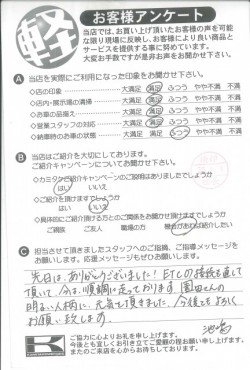 軽
お客様アンケート
当店では、お買い上げ頂いたお客様の声を可能
な限り現場に反映し、お客様により良い商品と
サービスを提供する事に努めています。
大変お手数ですが是非お声をお聞かせ下さい。
A 当店を実際にご利用になった印象をお聞かせ下さい。
◇店の印象 大満足 満足 ふつう やや不満 不満
◇店内・展示場の清掃 大満足 満足 ふつう やや不満 不満
◇お車の品揃え 大満足 満足 ふつう やや不満 不満
◇営業スタッフの対応 大満足 満足 ふつう やや不満 不満
◇納車時のお車の状態 大満足 満足 ふつう やや不満 不満
B 当店はご紹介を大切にしております。
ご紹介キャンペーンについてお聞かせ下さい。
◇カミタケご紹介キャンペーンのご説明はありましたでしょうか
はい いいえ
◇ご紹介を頂けますでしょうか
はい いいえ
◇具体的にご紹介頂ける方とのご関係をお聞かせ頂けますでしょうか
ご親族 ご友人 職場の方
C 担当させて頂きましたスタッフへのご指摘、ご指導メッセージを
お願いします。応援メッセージもぜひお願いします。
先日は、ありがとうございました！ETCの接続も直して
頂いて、今は、順調に走っております。園田さんの
明るい人柄に、元気て頂きました。今後ともよろしく
お願い致します。
K
ご協力に心よりお礼を申し上げます。
今後とも宜しくお引き立てご愛顧の程お願い申し上げます。
またのご来店を心からお待ちしております。